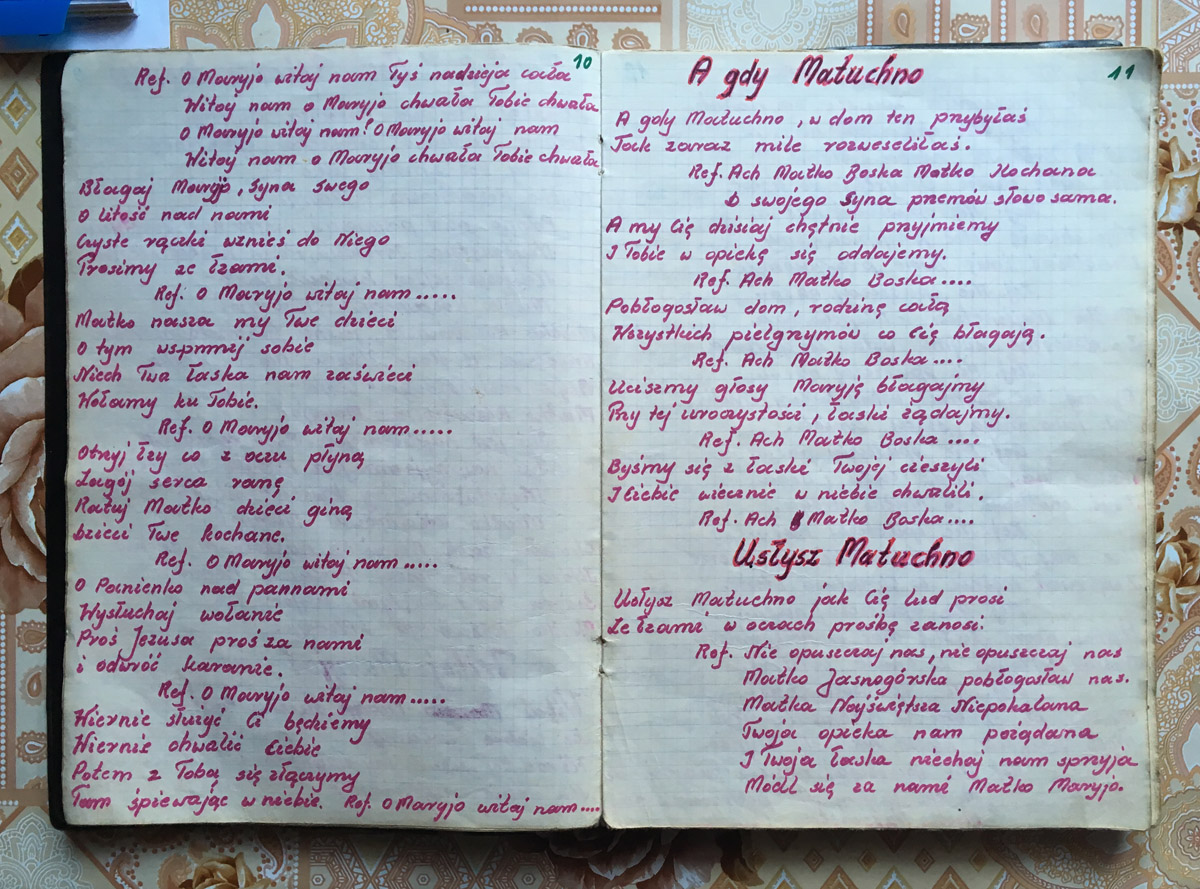 10
Ref. O Maryjo witaj nam Tyś nadzieja cała
Witaj nam o Maryjo chwała Tobie chwała
O Maryjo witaj nam! O Maryjo witaj nam
Witaj nam o Maryjo chwała Tobie chwała
Błagaj Maryjo, Syna swego
O litość nad nami
Czyste rączki wznieś do Niego
Prosimy ze łzami.
Ref. O Maryjo witaj nam.....
Matko nasza my Twe dzieci
O tym wspomnij sobie
Niech Twa łaska nam zaświeci
Wołamy ku Tobie.
Ref. O Maryjo witaj nam.....
Otrzyj łzy co z oczu płyną
Zagój serca ranę
Ratuj Matko dzieci giną
Dzieci Twe kochane.
Ref. O Maryjo witaj nam.....
O Panienko nad pannami
Wysłuchaj wołanie
Proś Jezusa proś za nami
i odwróć karanie.
Ref. O Maryjo witaj nam.....
Wiernie służyć Ci będziemy
Wiernie chwalić Ciebie
Potem z Tobą się złączymy
Tam śpiewając w niebie. Ref. O Maryjo witaj nam....
11
A gdy Matuchno
A gdy Matuchno, w dom ten przybyłaś
Tak zaraz mile rozweseliłaś.
Ref. Ach Matko Boska Matko Kochana
Do swojego Syna przemów słowo sama.
A my Cię dzisiaj chętnie przyjmiemy
I Tobie w opiekę się oddajemy.
Ref. Ach Matko Boska....
Pobłogosław dom, rodzinę całą
Wszystkich pielgrzymów co Cię błagają.
Ref. Ach Matko Boska....
Uciszmy głosy Maryję błagajmy
Przy tej uroczystości, łaski żądajmy.
Ref. Ach Matko Boska....
Byśmy się z łaski Twojej cieszyli
I Ciebie wiecznie w niebie chwalili.
Ref. Ach Matko Boska....
Usłysz Matuchno
Usłysz Matuchno jak Cię lud prosi
Ze łzami w oczach prośbę zanosi.
Ref. Nie opuszczaj nas, nie opuszczaj nas
Matko Jasnogórska pobłogosław nas.
Matka Najświętsza Niepokalana
Twoja opieka nam pożądana
I Twoja łaska niechaj nam sprzyja
Módl się za nami Matko Maryjo.